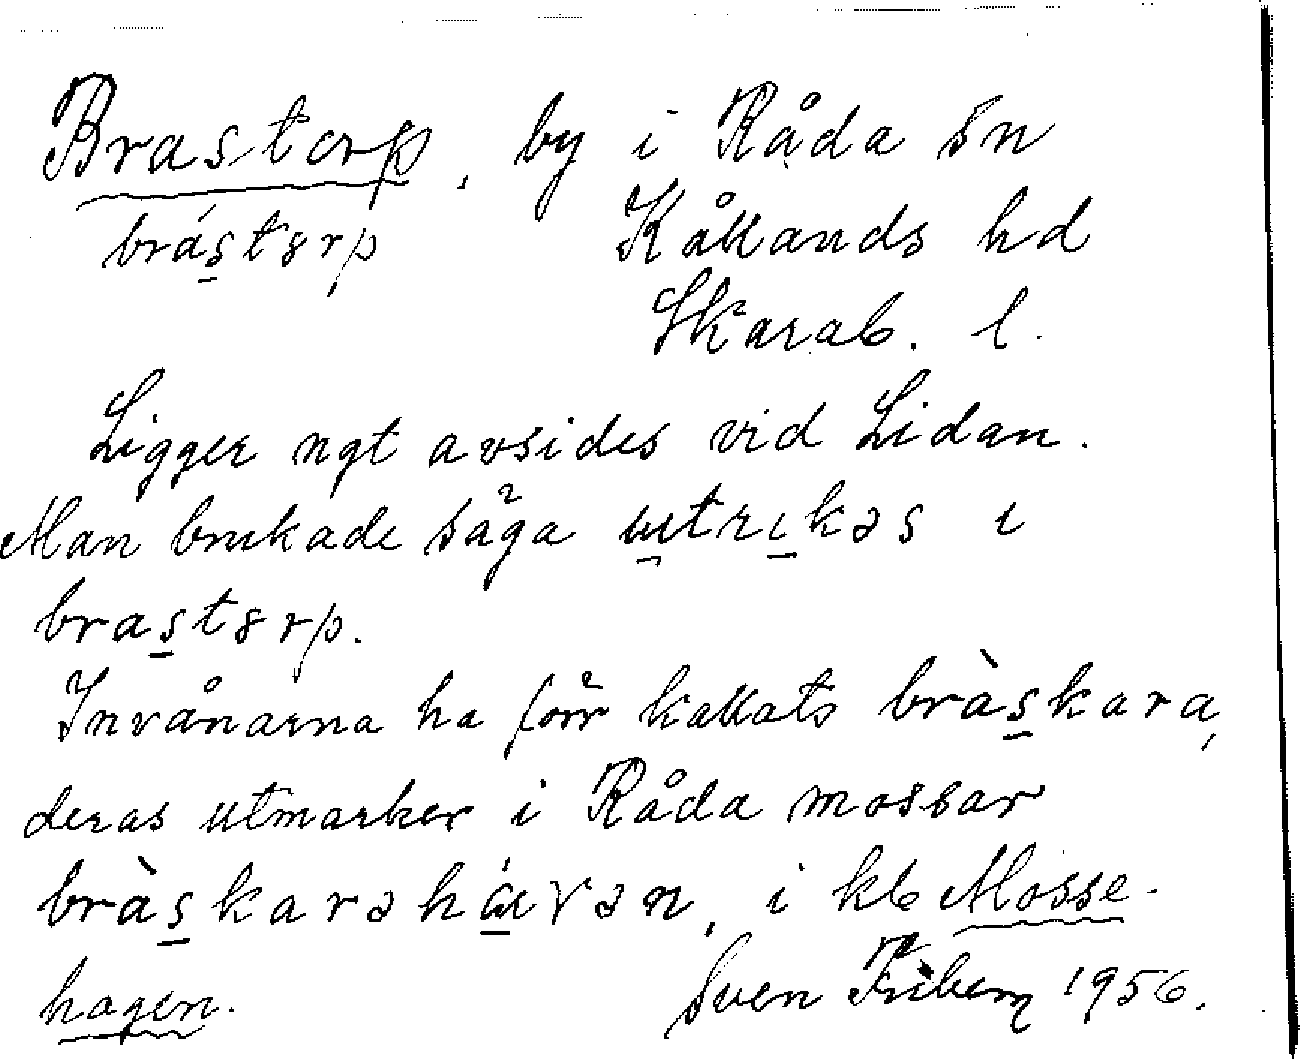 Brastorp, by i Råda sn
brás̲tɜrp Kållands hd
Skarab. l.
Ligger ngt avsides vid Lidan.
Man brukade säga utrikəs i
bras̲tɜrp.
Invånarna ha förr kallats bràs̲kara,
deras utmarker i Råda mossar
bràs̲karəhävən, i kb Mosse-
hagen. Sven Friberg 1956.